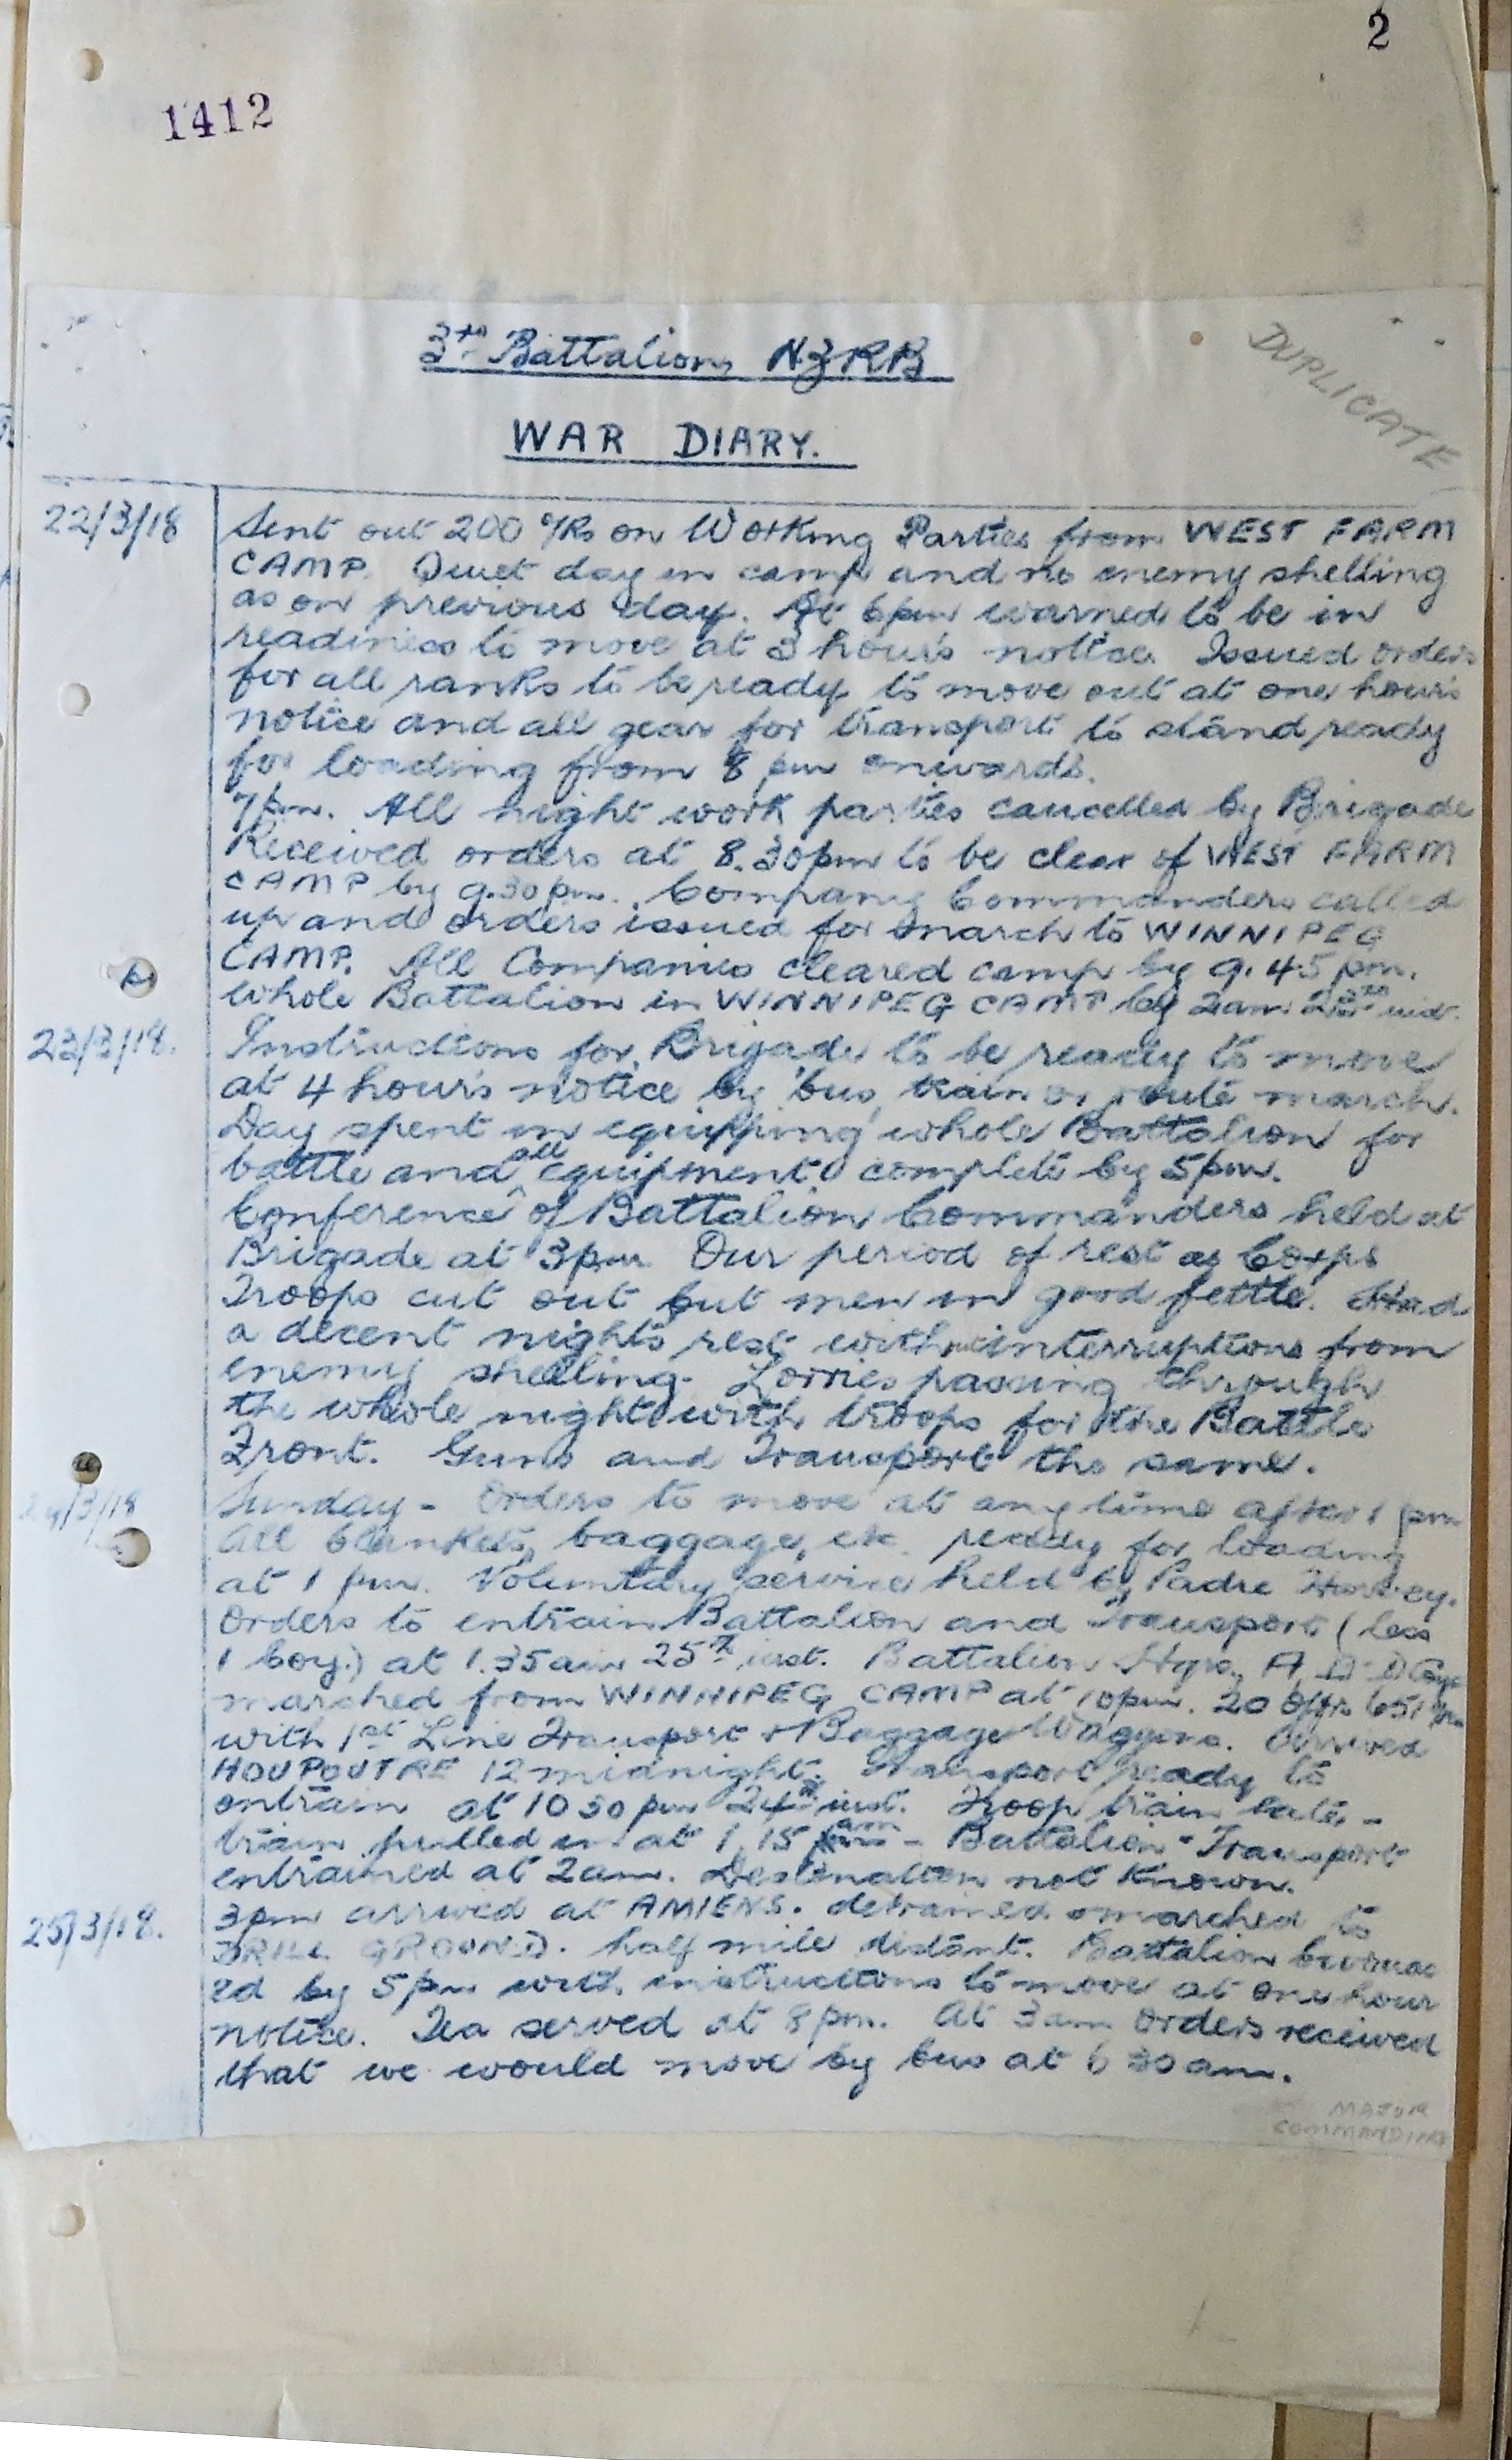 2
1412
3rd Battalion NZRB
DUPLICATE
WAR DIARY.
22/3/18 Sent out 200 O/Rs on Working Parties from WEST FARM
CAMP. Quiet day in camp and no enemy shelling
as on previous day. At 6pm warned to be in
readiness to move at 3 hours notice. Issued orders
for all ranks to be ready to move out at one hours
notice and all gear for transport to stand ready
for loading from 8 pm onwards.
7pm. All night work parties cancelled by Brigade
Received orders at 8.30pm to be clear of WEST FARM
CAMP by 9.30pm. Company Commanders called
up and orders issued for march to WINNIPEG
CAMP. All Companies cleared camp by 9.45 pm.
Whole Battalion in WINNIPEG CAMP by 2am 23rd inst.
23/3/18. Instructions for Brigade to be ready to move
at 4 hours notice by bus, train or route march.
Day spent in equipping whole Battalion for
battle and all equipment complete by 5pm.
Conference of Battalion Commanders held at
Brigade at 3pm. Our period of rest as Corps
Troops cut out but men in good fettle. Had
a decent nights rest without interruptions from
enemy shelling. Lorries passing through
the whole night with troops for the Battle
Front. Guns and Transport the same.
24/3/18 Sunday - Orders to move at any time after 1 pm
All blankets, baggage, etc. ready for loading
at 1 pm. Voluntary service held by Padre
Orders to entrain Battalion and Transport (less
1 Coy.) at 1.35am 25th inst. Battalion Hqrs., A,
marched from WINNIPEG CAMP at 10pm. 20 Offrs 651
with 1st Line Transport + Baggage Waggons. Arrived
HOUPOUTRE 12 midnight. Transport ready to
entrain at 10 30 pm 24th inst. Troop train late -
train pulled in at 1.15 am - Battalion + Transport
entrained at 2am. Destination not known.
25/3/18. 3pm arrived at AMIENS. detrained + marched to
DRILL GROUND. half mile distant. Battalion bivouac
ed by 5pm with instructions to move at one hour
notice. Tea served at 8pm. At 3am orders received
that we would move by bus at 6 30 am.
MAJOR
COMMANDING